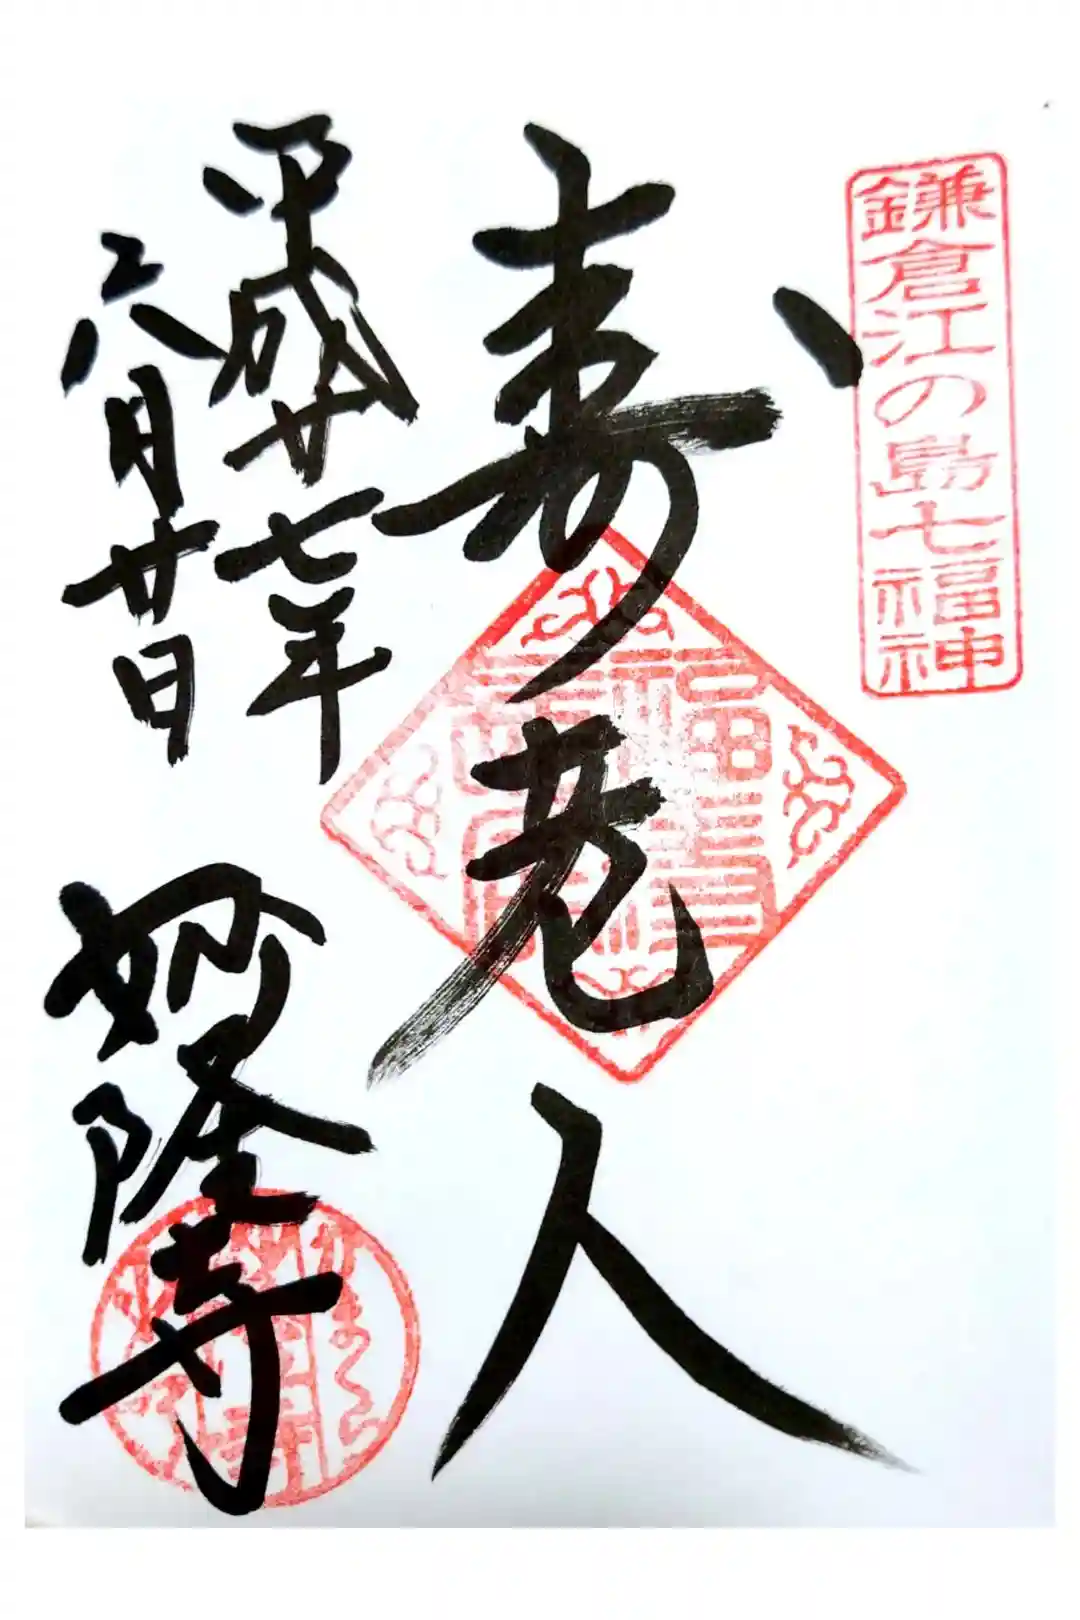 鎌倉江の島七福神
寿老人
平成廿七年
六月廿日
妙隆寺